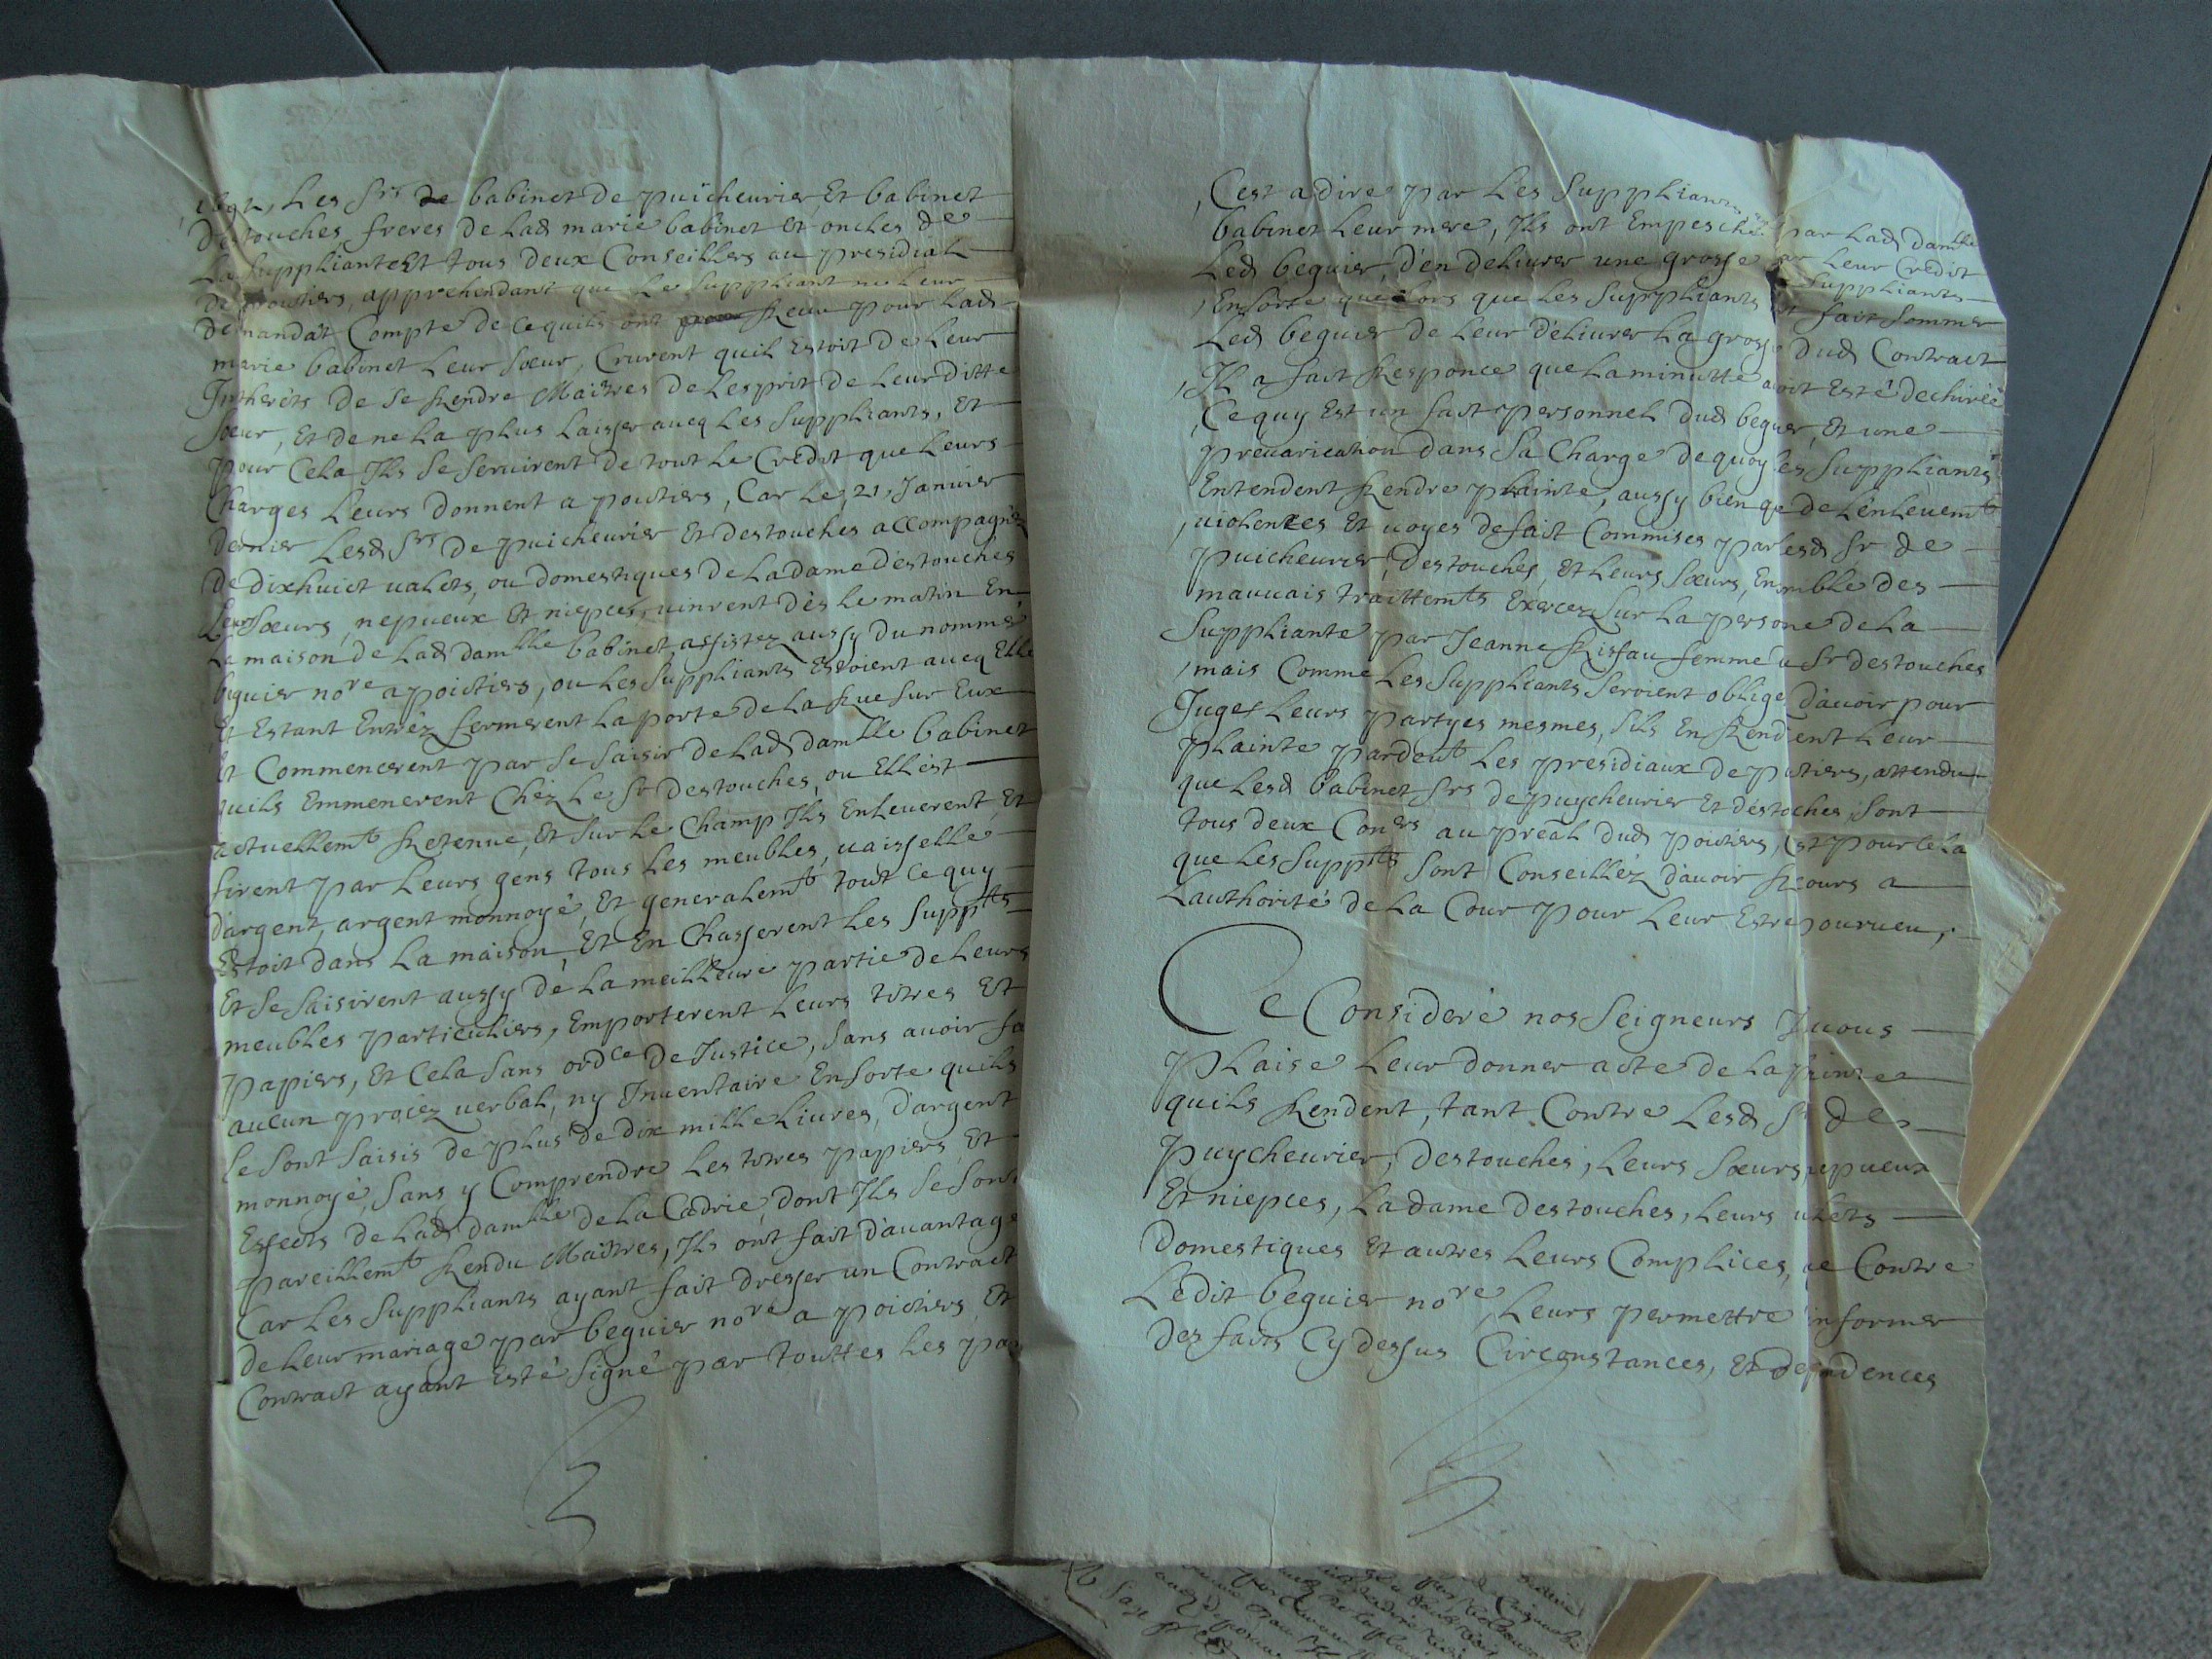 Les Srs de babinet de puicheurier, Et babinet
Destouches freres de lad marie babinet et oncles de
La Suppliante Et tous deux Conseillers au presidial
de poictiers, apprehendant que Le Suppliant ne Leur
demandat Compte de ce quils ont Receu pour lad
marie babinet Leur Sœur, Crurent quil Estoit de Leur
Intherêts de Se Rendre Maitres de Lesprit de Leur ditte
Sœur, Et de ne La plus Laisser aueq Les Suppliants, Et
pour Cela Ils Se Seruirent de tout Le Credit que Leurs
Charges Leurs donnent a poictiers, Car Le 21, Januier
dernier Lesd Srs de puicheurier Et destouches accompagnéz
de dixhuict ualets, ou domestiques de La dame destouches
Leurs Sœurs, nepueux Et niepces, uinrent dès Le matin En
La maison de Lad damlle babinet, assistez aussy du nommé
beguier nore a poictiers, ou Les Suppliants Estoient aueq Elle
Et Estant Entréz fermerent La porte de La Rue Sur Eux
Et Commencerent par Se Saisir de Lad damlle babinet
quils Emmenerent Chéz Le Sr destouches, ou Ellest
actuellemt Retenue, Et Sur Le Champ Ils Enleuerent, Et
firent par Leurs gens tous Les meubles, uaisselle
d'argent, argent monnoyé, Et generalemt tout Ce quy
Estoit dans La maison, Et En Chasserent Les Suppts
Et Se Saisirent aussy de La meilleure partie de Leurs
meubles particuliers, Emporterent Leurs titres Et
papiers, Et Cela Sans ordce de Justice, Sans auoir fa
aucun procéz uerbal, ny Inuentaire Ensorte quils
Se Sont Saisis de plus de dix mille Liures, d'argent
monnoyé, Sans y Comprendre Les titres papiers Et
Effects de Lad damlle de La Cadrie, dont Ils Se Sont
pareillemt Rendu Maitres, Ils ont fait d'auantage
Car Les Suppliants ayant fait dresser un Contract
de Leur mariage par beguier nore a poictiers Et
Contract ayant Esté Signé par touttes Les par

C'est a dire par Les Suppliants par Lad damlle
babinet Leur mere, Ils ont Empesché par Leur Credit
Led beguier, d'en deliurer une grosse Suppliants
Ensorte que Lors que Les Suppliants ont fait Sommer
Led beguier de Leur déliurer La grosse dud Contract
Il a fait Responce que La minutte auoit Esté dechirée
Ce quy Est un fait personnel dud beguier, Et une
preuarication dans Sa Charge de quoy Les Suppliants
Entendent Rendre plainte, aussy bien que de L'enleuemt
uiolences Et uoyes de fait Commises par Lesd Sr de
puicheurier, destouches, Et Leurs Sœurs, Ensemble des
mauuais traittemts Exercez Sur La persone de La
Suppliante par Jeanne Rifau femme du Sr destouches
mais Comme Les Suppliants Seroient obligez d'auoir pour
Juges Leurs partyes mesmes, Sils En Rendoient Leur
plainte pardeut Les presidiaux de poictiers, attendu
que Lesd babinet Srs de puycheurier Et destoches, Sont
tous deux Coners au preal dud poictiers, Cest pour Cela
que Les Suppts Sont Conseilléz d'auoir Recours a
L'authorité de La Cour pour Leur Estre pourueu,

Ce Consideré nos Seigneurs Il uous
plaise Leur donner acte de La plainte
quils Rendent, tant Contre Lesd Sr de
Puycheurier, destouches, Leurs Sœurs, nepueux
Et niepces, La dame destouches, Leurs ualets
Domestiques Et autres Leurs Complices, que Contre
Ledit beguier nore, Leurs permettre informer
des faits Cy dessus Circonstances, Et dependences